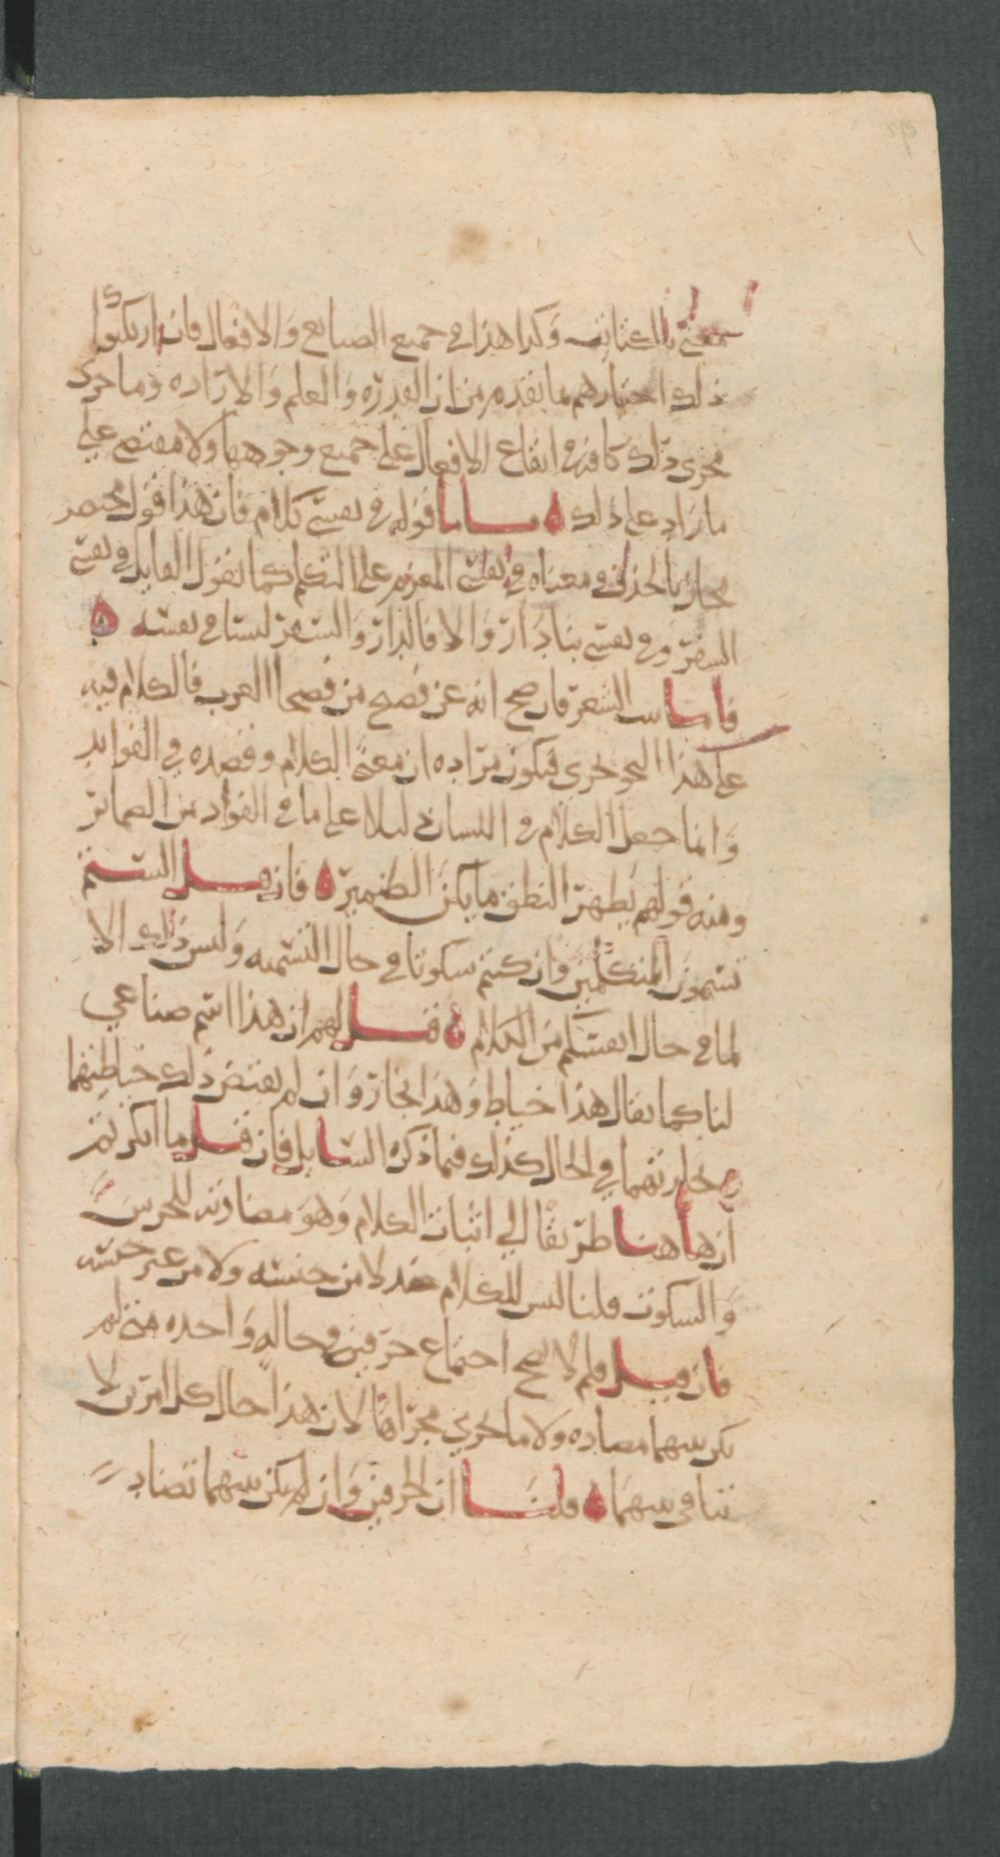 معنى بالكتابة وكذا هذا في جميع الصنايع والافعال فان ارتكبوا
ذلك اخبارهم بما تقدم من ان القدرة والعلم والارادة وما جرى
مجرى ذلك كافية في ايقاع الافعال على جميع وجوهها ولا مقتضى على
ما زاد على ذلك فاما قولهم في نفسي كلام فان هذا قول مختصر
مجاز بالحذف ومعناه في نفسي العزم على التكلم كما يقول القايل في نفسي
السفر وفي نفسي بنا دار والا فالدار والسفر ليسا في نفسه
فاما بيت الشعر فان صح انه عن فصيح من فصحا العرب فالكلام فيه
على هذا النحو جرى فيكون مراده ان معنى الكلام وقصده في الفواد
وانما جعل الكلام في اللسان دليلا على ما في الفواد من الضماير
ومنه قولهم يظهر النطق ما يكن الضمير فان قيل الستم
تسمون المتكلمين وان كنتم سكوتا في حال التسمية وليس ذلك الا
لما في حال انفسكم من الكلام فقل لهم ان هذا اسم صناعي
لنا كما يقال هذا خياط وهذا نجار وان لم يقتض ذلك خياطتهما
ونجارتهما في الحال كذلك فيما ذكره السايل فان قيل ما انكرتم
ان هاهنا طريقا الى اثبات الكلام وهو مضادته للخرس
والسكوت قلنا ليس للكلام ضد لا من جنسه ولا من غير جنسه
فان قيل فلم لا يصح اجتماع حرفين في حالة واحدة متى لم
يكن بينهما مضادة ولا ما يجري مجراها لان هذا حال كل امرين لا
تنافي بينهما قلنا ان الحرفين وان لم يكن بينهما تضاد